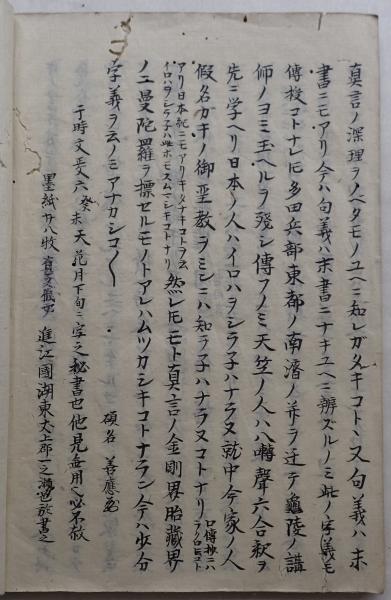 真言ノ深理ヲノベタモノユヘニ知レガタキコト又句義ハ末
書ニモアリ今ハ句義ハ末書ニナキユヘニ辨ズルノミ此ノ字義モ
傳授コトナレ𪜈多田兵部東都ノ南濱ノ荓ヲ迂テ龜陵ノ講
師ノヨミ玉ヘルヲ殘シ傳フノミ天竺ノ人ハ八囀聲六合釈ヲ
先ニ学ヘリ日本ノ人ハイロハヲシラ子ハナラヌ就中今家ノ人
假名ガキノ御聖教ヲミレニハ知ラ子ハナラヌコトナリ
アリ日本紀ニモアリキタナキコトヲ云
イロハヲシラ子ハ
然レ𪜈モト真言ノ金剛界胎藏界
ノニ曼陀羅ヲ標セルモノトアレハムツカシキコトナラン今ハ少分
字義ヲ云ノミアナカシコ〱
碩名 善應
于時文政六癸未天 月下旬二字之秘書也他見無用之必不赦
墨紙廿八枚 進江國湖東犬上郡